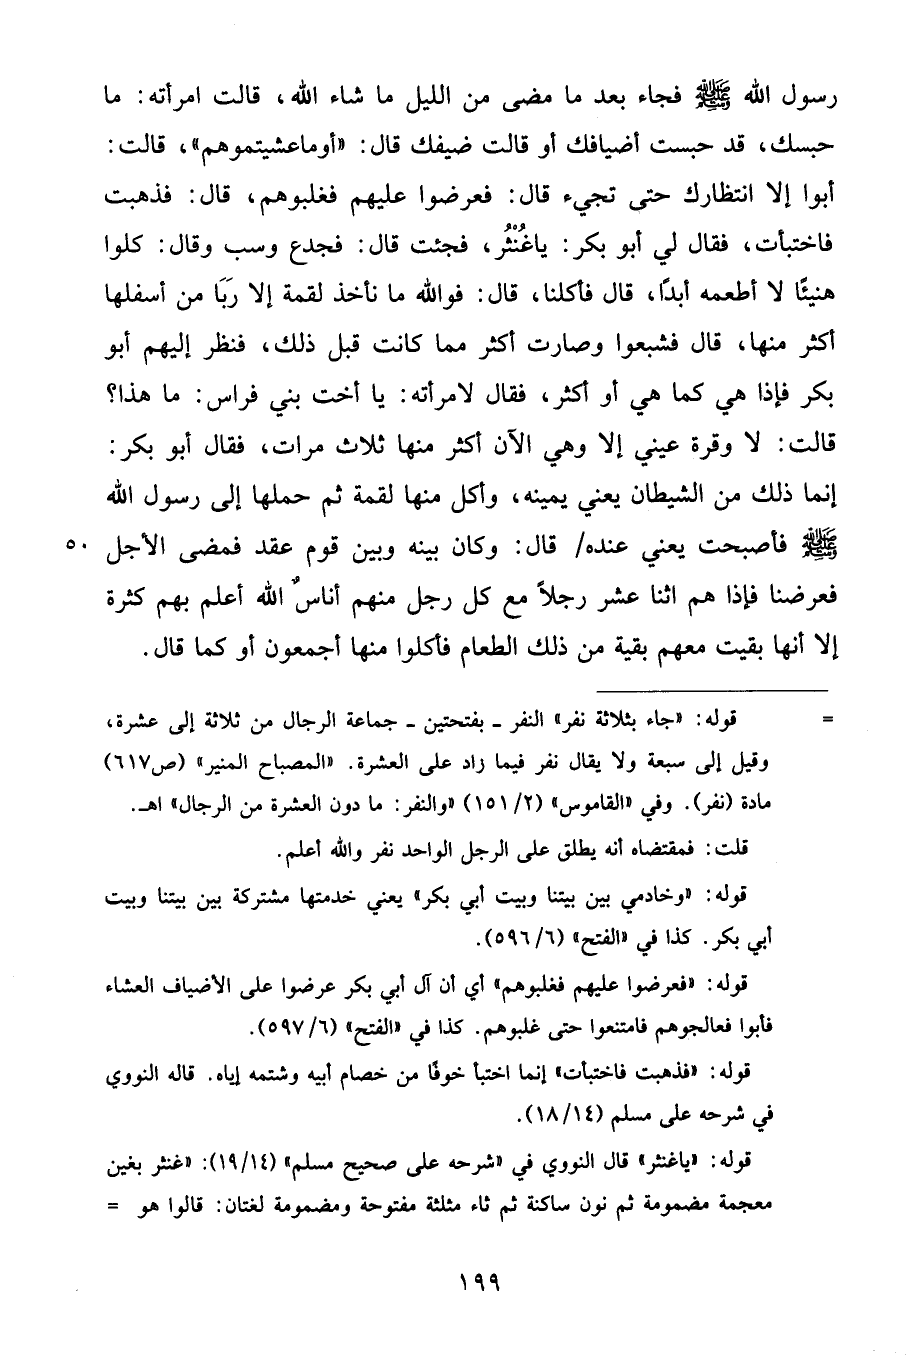 رسول الله ﷺ فجاء بعد ما مضى من الليل ما شاء الله، قالت امرأته: ما
حبسك، قد حبست أضيافك أو قالت ضيفك قال: «أوماعشيتموهم»، قالت:
أبوا إلا انتظارك حتى تجيء قال: فعرضوا عليهم فغلبوهم، قال: فذهبت
فاختبأت، فقال لي أبو بكر: ياغُنْثُر، فجئت قال: فجدع وسب وقال: كلوا
هنيئًا لا أطعمه أبدًا، قال فأكلنا، قال: فوالله ما نأخذ لقمة إلا رَبَا من أسفلها
أكثر منها، قال فشبعوا وصارت أكثر مما كانت قبل ذلك، فنظر إليهم أبو
بكر فإذا هي كما هي أو أكثر، فقال لامرأته: يا أخت بني فراس: ما هذا؟
قالت: لا وقرة عيني إلا وهي الآن أكثر منها ثلاث مرات، فقال أبو بكر:
إنما ذلك من الشيطان يعني يمينه، وأكل منها لقمة ثم حملها إلى رسول الله
ﷺ فأصبحت يعني عنده/ قال: وكان بينه وبين قوم عقد فمضى الأجل ٥٠
فعرضنا فإذا هم اثنا عشر رجلاً مع كل رجل منهم أناسٌ الله أعلم بهم كثرة
إلا أنها بقيت معهم بقية من ذلك الطعام فأكلوا منها أجمعون أو كما قال.
= قوله: «جاء بثلاثة نفر» النفر ـ بفتحتين ـ جماعة الرجال من ثلاثة إلى عشرة،
وقيل إلى سبعة ولا يقال نفر فيما زاد على العشرة. «المصباح المنير» (ص٦١٧)
مادة (نفر). وفي «القاموس» (١٥١/٢) «والنفر: ما دون العشرة من الرجال» اهـ.
قلت: فمقتضاه أنه يطلق على الرجل الواحد نفر والله أعلم.
قوله: «وخادمي بين بيتنا وبيت أبي بكر» يعني خدمتها مشتركة بين بيتنا وبيت
أبي بكر. كذا في «الفتح» (٥٩٦/٦).
قوله: «فعرضوا عليهم فغلبوهم» أي أن آل أبي بكر عرضوا على الأضياف العشاء
فأبوا فعالجوهم فامتنعوا حتى غلبوهم. كذا في «الفتح» (٥٩٧/٦).
قوله: «فذهبت فاختبأت» إنما اختبأ خوفًا من خصام أبيه وشتمه إياه. قاله النووي
في شرحه على مسلم (١٨/١٤).
قوله: «ياغنثر» قال النووي في «شرحه على صحيح مسلم» (١٩/١٤): «غنثر بغين
معجمة مضمومة ثم نون ساكنة ثم ثاء مثلثة مفتوحة ومضمومة لغتان: قالوا هو =
١٩٩